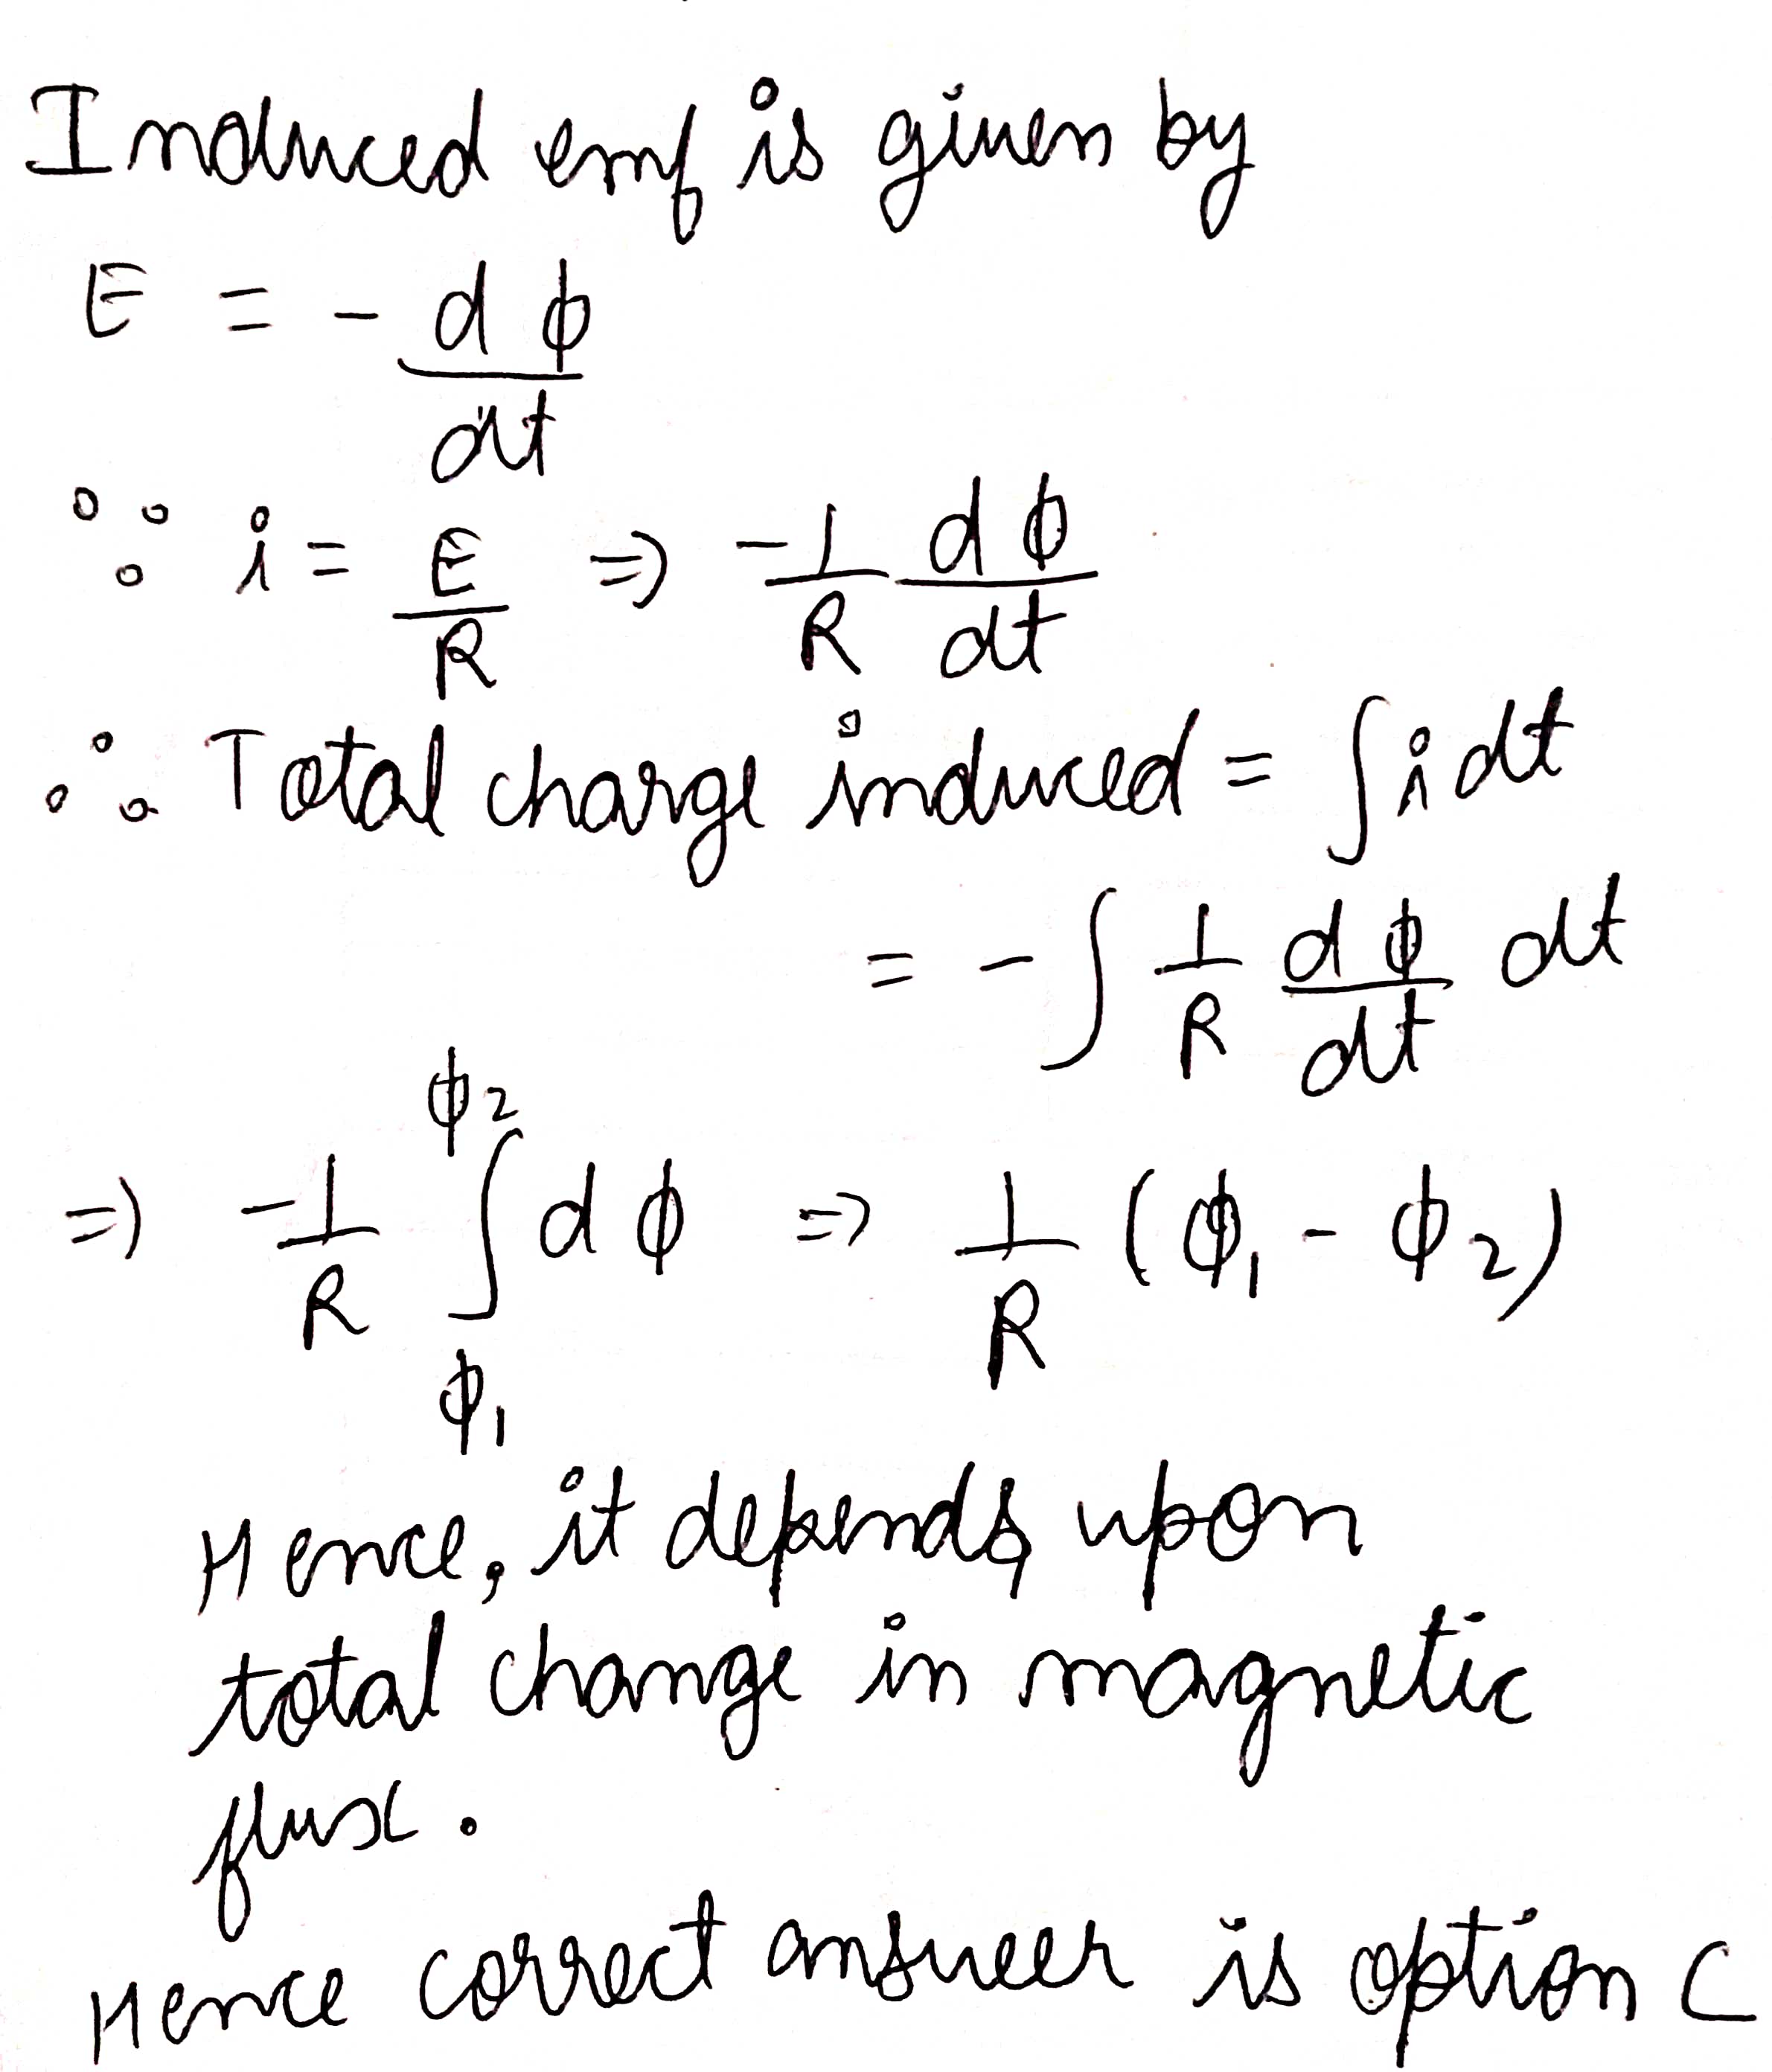 Induced emf is given by
E = - dϕ/dt
∵ i = E/R ⇒ -1/R dϕ/dt
∴ Total charge induced = ∫ i dt
= - ∫ 1/R dϕ/dt dt
⇒ -1/R ∫_ϕ₁^ϕ₂ dϕ ⇒ 1/R (ϕ₁ - ϕ₂)
Hence, it depends upon
total change in magnetic
flux.
Hence correct answer is option C